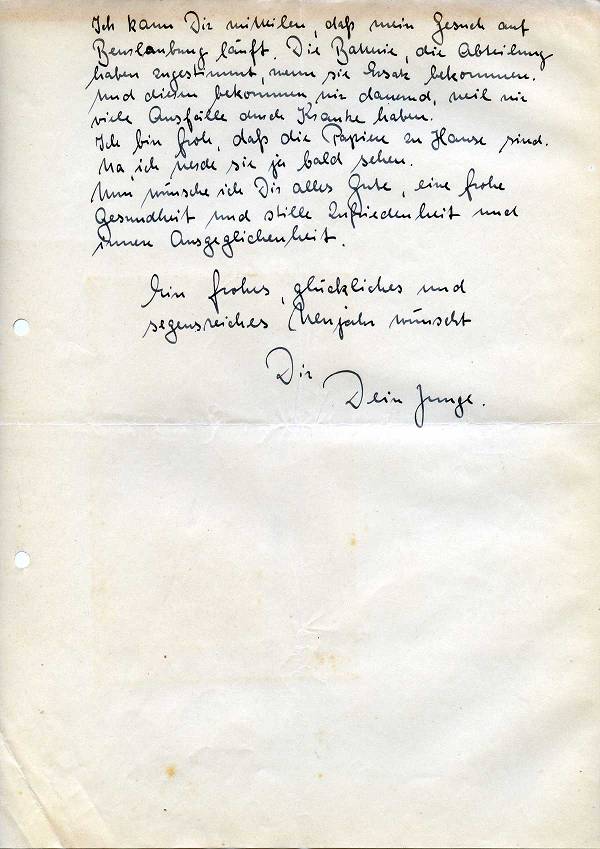 Ich kann Dir mitteilen, daß mein Gesuch auf
Beurlaubung läuft. Die Batterie, die Abteilung
haben zugestimmt, wenn sie Ersatz bekommen.
Und diesen bekommen wir dauernd, weil wir
viele Ausfälle durch Kranke haben.
Ich bin froh, daß die Papiere zu Hause sind.
Na ich werde sie ja bald sehen.
Nun wünsche ich Dir alles Gute, eine frohe
Gesundheit und stille Zufriedenheit und
innere Ausgeglichenheit.
Ein frohes, glückliches und
segensreiches Neujahr wünscht
Dir
Dein Junge.